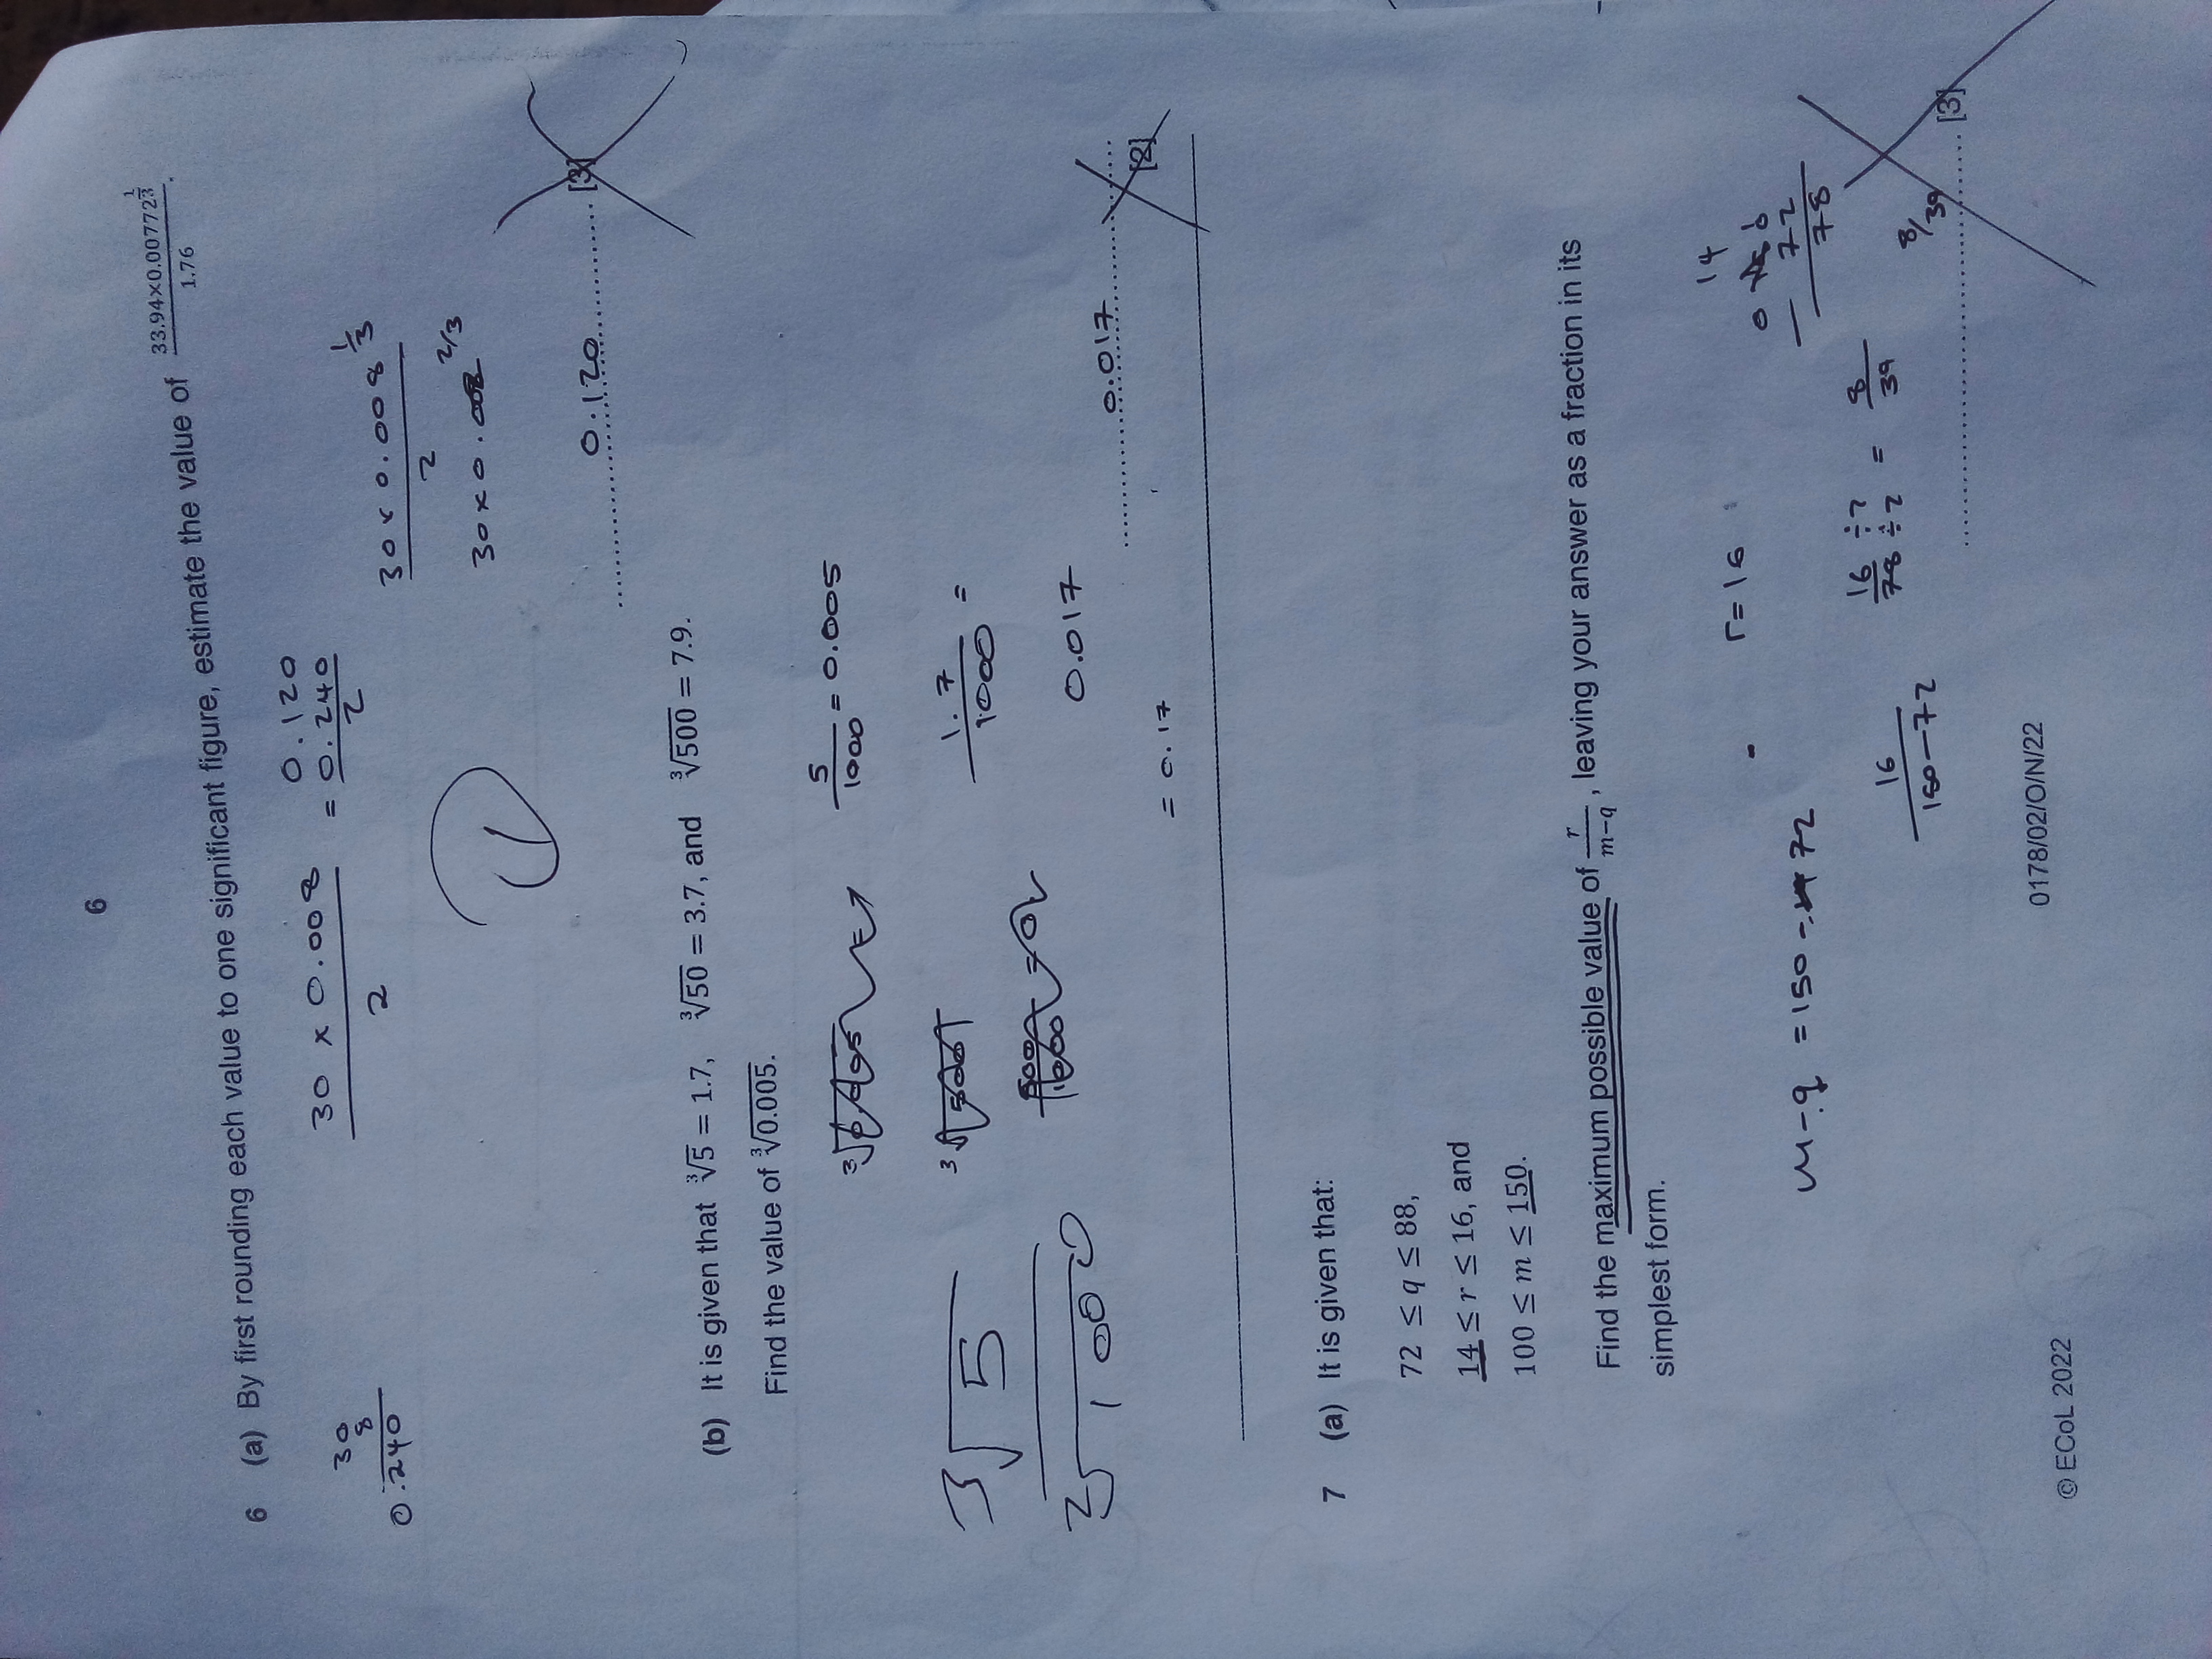 6
6 (a) By first rounding each value to one significant figure, estimate the value of 33.94×0.00772^(1/3) / 1.76 .
30
8
0.240
30 x 0.008 / 2 = 0.240 / 2
0.120
30 x 0.008^(1/3) / 2
30 x 0.008^(2/3)
1
0.120 [3]
(b) It is given that ∛5 = 1.7, ∛50 = 3.7, and ∛500 = 7.9.
Find the value of ∛0.005.
5/1000 = 0.005
∛5 / ∛1000
1.7/1000 =
0.017
0.017
[2]
= 0.17
7 (a) It is given that:
72 ≤ q ≤ 88,
14 ≤ r ≤ 16, and
100 ≤ m ≤ 150.
Find the maximum possible value of r/(m−q) , leaving your answer as a fraction in its
simplest form.
r = 16
m - q = 150 - 72
14
- 72
78
16 / 150 - 72
16 ÷ 2 / 78 ÷ 2 = 8/39
8/39 [3]
© ECoL 2022
0178/02/O/N/22